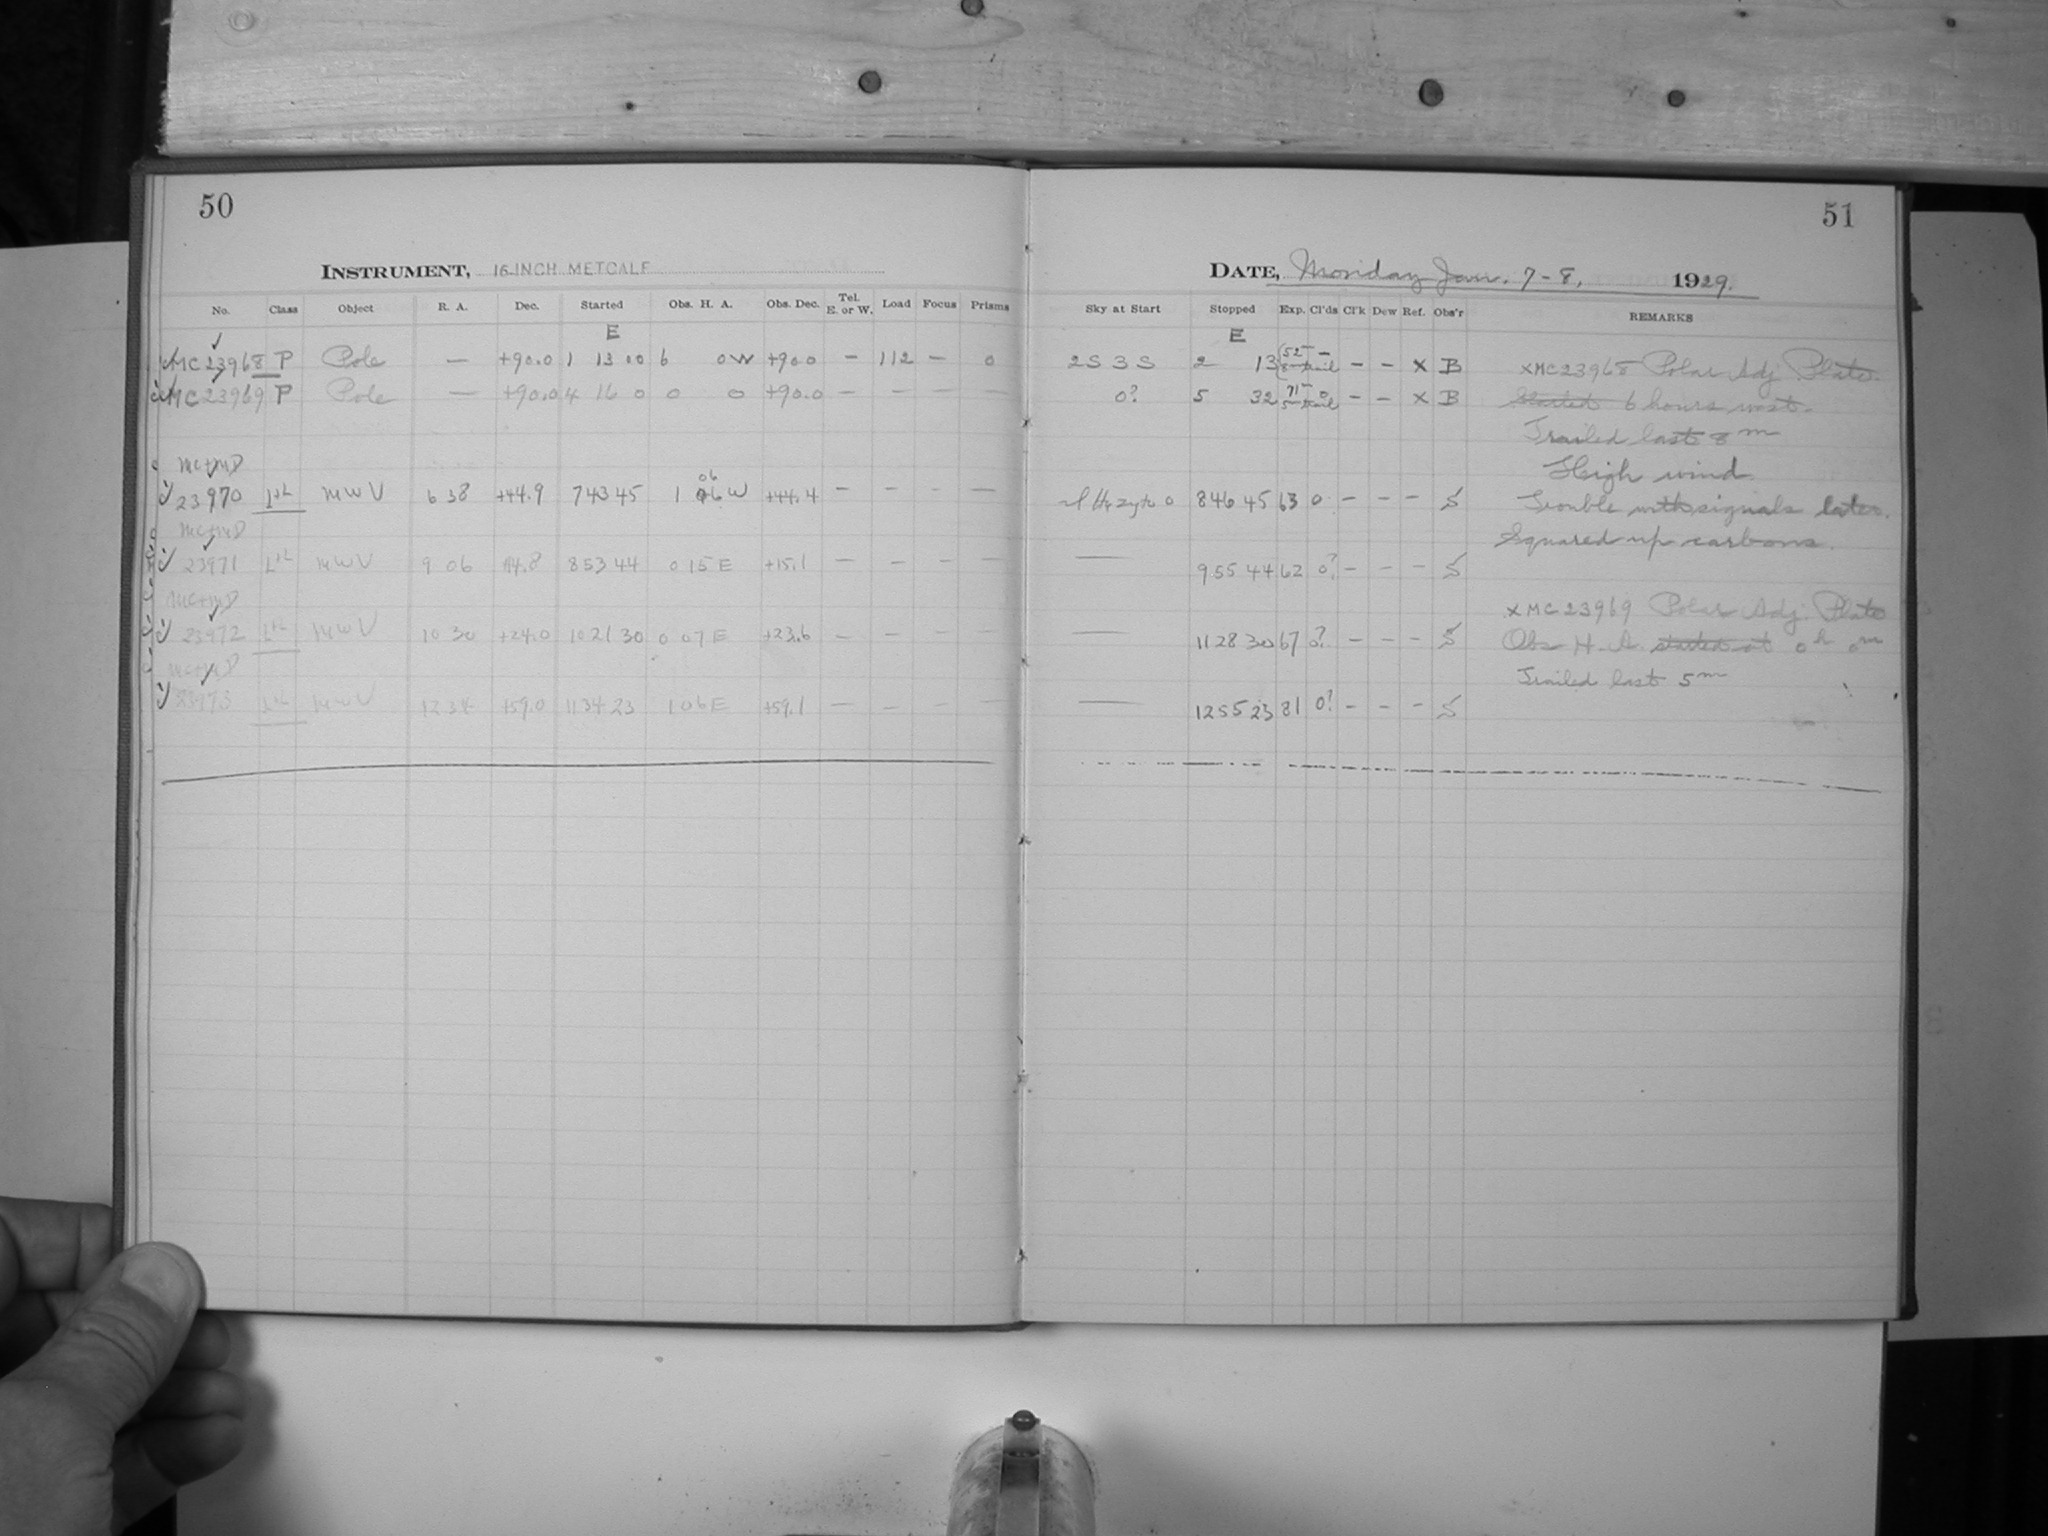 50
INSTRUMENT, 16-INCH METCALF
No. Class Object R. A. Dec. Started Obs. H. A. Obs. Dec. Tel. E. or W. Load Focus Prisms
E
MC23968 P Pole — +90.0 1 13 00 6 0W +90.0 — 112 — 0
MC23969 P Pole — +90.0 4 16 0 0 0 +90.0 — — — —
MC+MD
23970 L+L MWV 6 38 +44.9 7 43 45 1 06 W +44.4 — — — —
MC+MD
23971 L+L MWV 9 06 +14.8 8 53 44 0 15 E +15.1 — — — —
MC+MD
23972 L+L MWV 10 30 +24.0 10 21 30 0 07 E +23.6 — — — —
MC+MD
23973 L+L MWV 12 34 +59.0 11 34 23 1 06 E +59.1 — — — —
51
DATE, Monday Jan. 7-8, 1929.
Sky at Start Stopped Exp. Cl'ds Cl'k Dew Ref. Obs'r REMARKS
E
2S 3S 2 13 52 — 8 trail — — X B XMC23968 Polar Adj. Plate.
0? 5 32 71 0 5 trail — — X B Started 6 hours west.
Trailed last 8m
High wind
0 8 46 45 63 0 — — — S Trouble with signals later.
Squared up carbons.
— 9 55 44 62 0? — — — S
XMC23969 Polar Adj. Plate
— 11 28 30 67 0? — — — S Obs H. A. started at 0h 0m
Trailed last 5m
— 12 55 23 81 0? — — — S